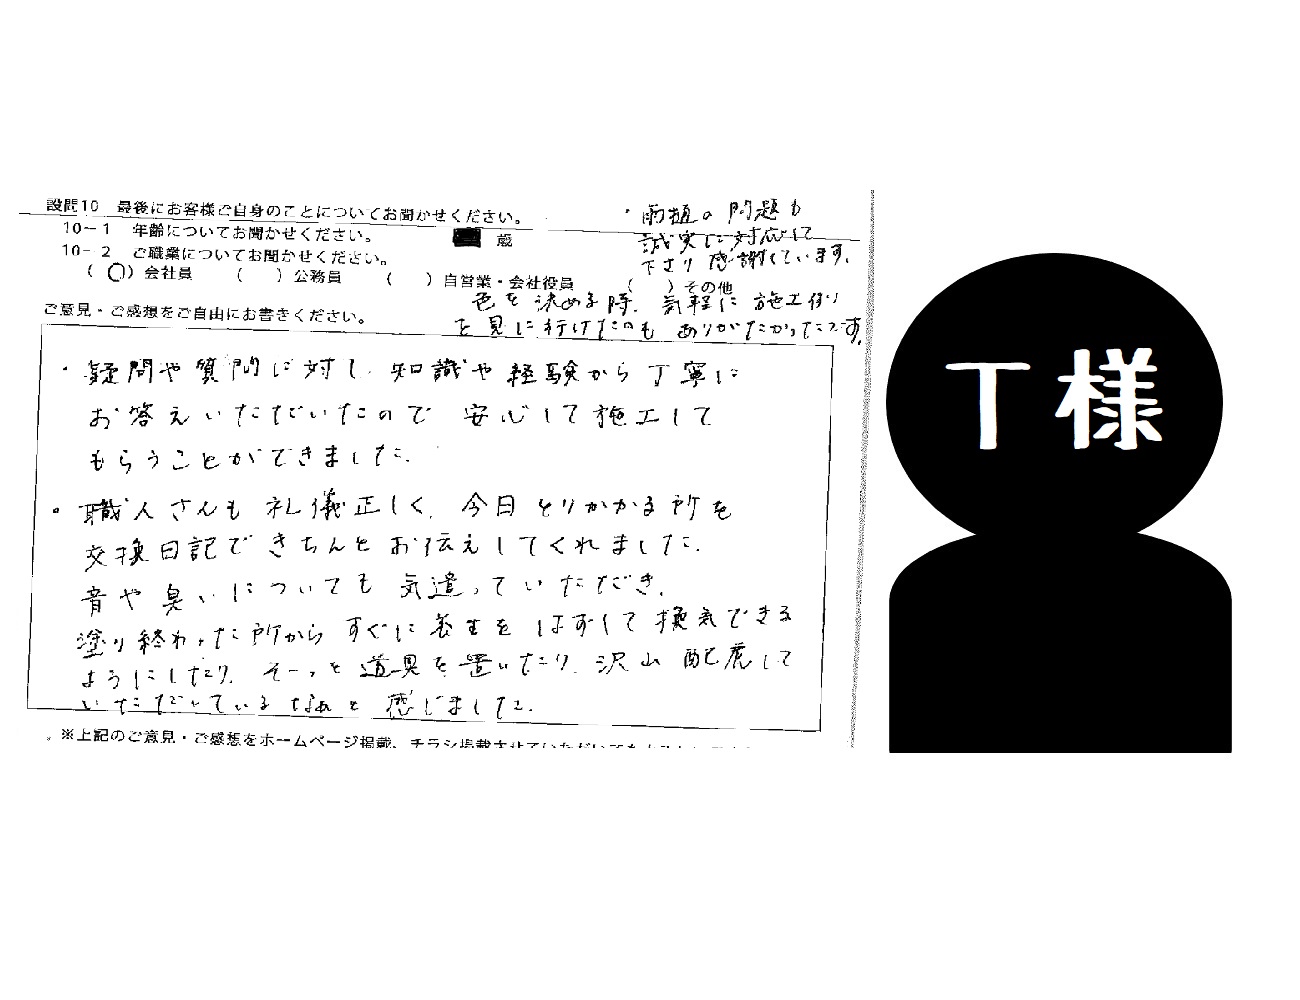 設問10　最後にお客様ご自身のことについてお聞かせください。
10－1　年齢についてお聞かせください。　歳
10－2　ご職業についてお聞かせください。
（ ○ ）会社員　（　　）公務員　（　　）自営業・会社役員　（　　）その他
・雨樋の問題も
誠実に対応して
下さり感謝しています。
色を決める時、気軽に施工例
を見に行けたのもありがたかったです。
ご意見・ご感想をご自由にお書きください。
・疑問や質問に対し、知識や経験から丁寧に
お答えいただいたので安心して施工して
もらうことができました。
・職人さんも礼儀正しく、今日とりかかる所を
交換日記できちんとお伝えしてくれました。
音や臭いについても気遣っていただき、
塗り終わった所からすぐに養生をはずして換気できる
ようにしたり、そーっと道具を置いたり、沢山配慮して
いただいているなぁと感じました。
※上記のご意見・ご感想をホームページ掲載、チラシ掲載させていただいても
T様